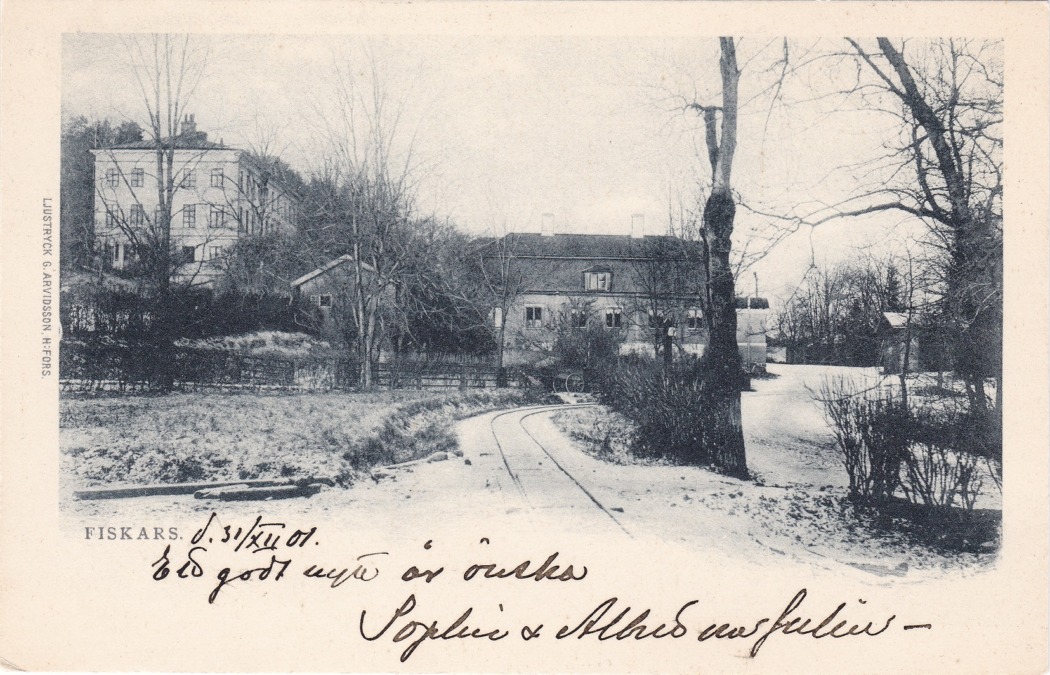 LJUSTRYCK G. ARVIDSSON, H:FORS.
FISKARS. d. 31/XII 01.
godt nytt år önska
Sophie & Albert Julin –